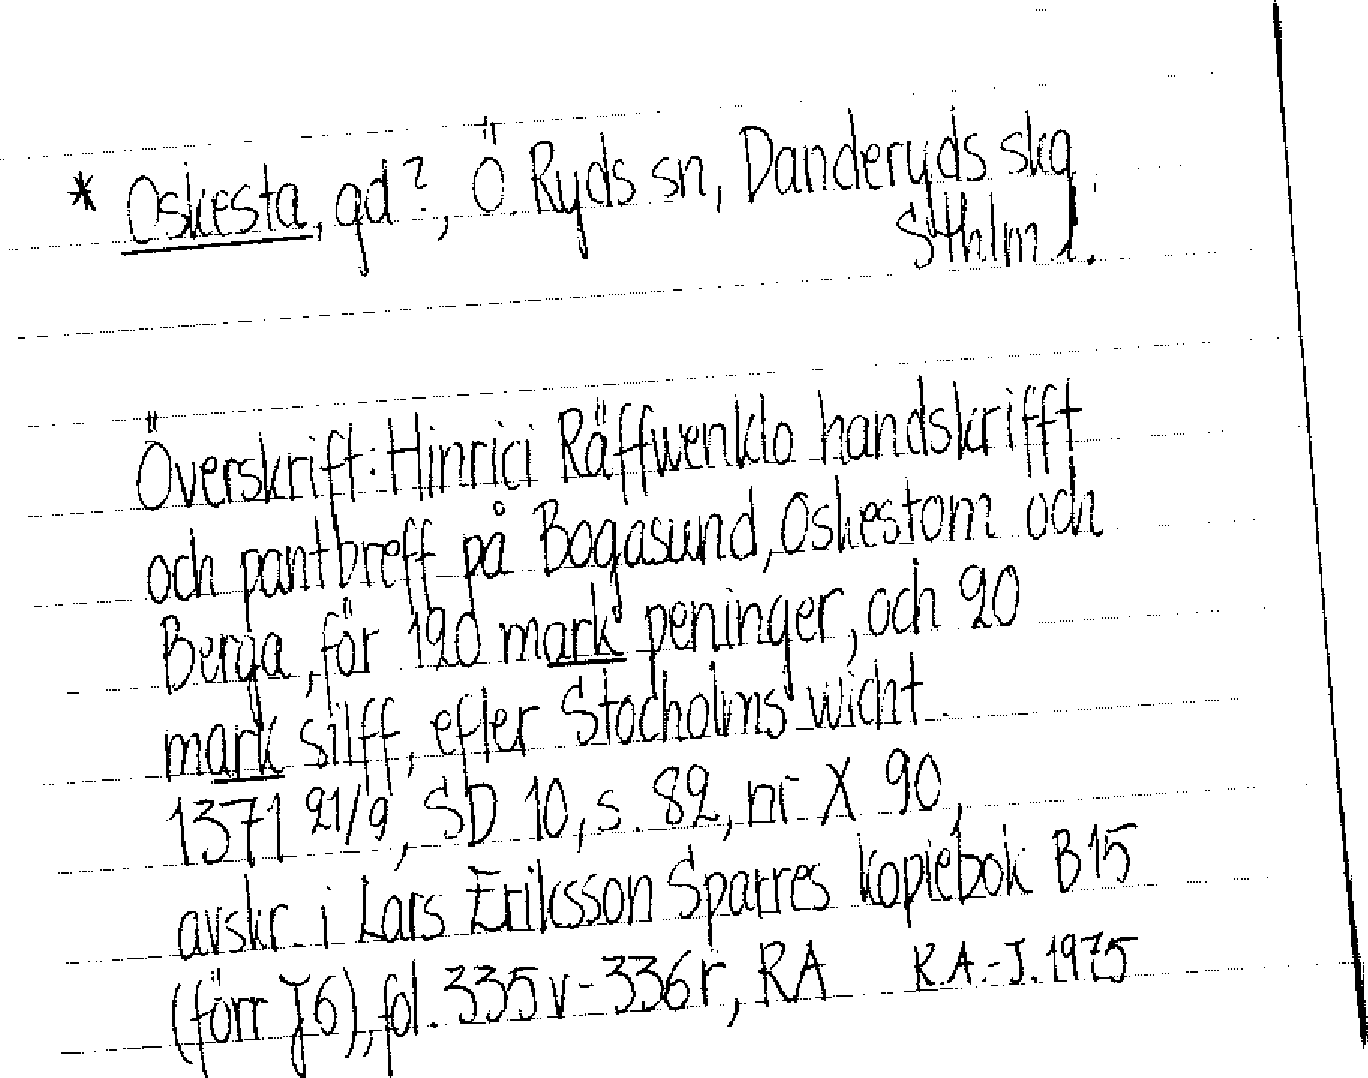 * Oskesta, gd?, Ö. Ryds sn, Danderyds skg,
Sthlm l.
Överskrift: Hinrici Räffwenklo handskrifft
och pantbreff på Bogasund, Oskestom och
Berga, för 120 mark peninger, och 20
mark silff, efter Stocholms wicht.
1371 21/9, SD 10, s. 82, nr X 90,
avskr. i Lars Eriksson Sparres kopiebok B 15
(förr J 6), fol. 335 v - 336 r, RA K.A.-J. 1975